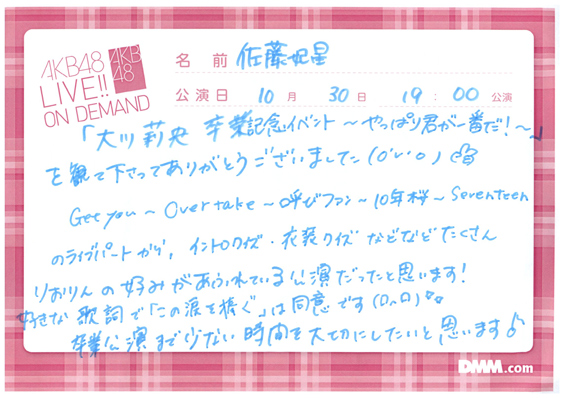 AKB48
LIVE!!
ON DEMAND
AKB
48
名前 佐藤妃星
公演日 10月 30日 19:00公演
「大川莉央 卒業記念イベント〜やっぱり君が一番だ!〜」
を観て下さってありがとうございました
Get you〜Overtake〜呼びファン〜10年桜〜Seventeen
のライブパートから,イントロクイズ・衣装クイズなどなどたくさん
りおりんの好みがあふれている公演だったと思います!
好きな歌詞で「この涙を稼ぐ」は同意です
卒業公演まで少ない時間を大切にしたいと思います♪
DMM.com